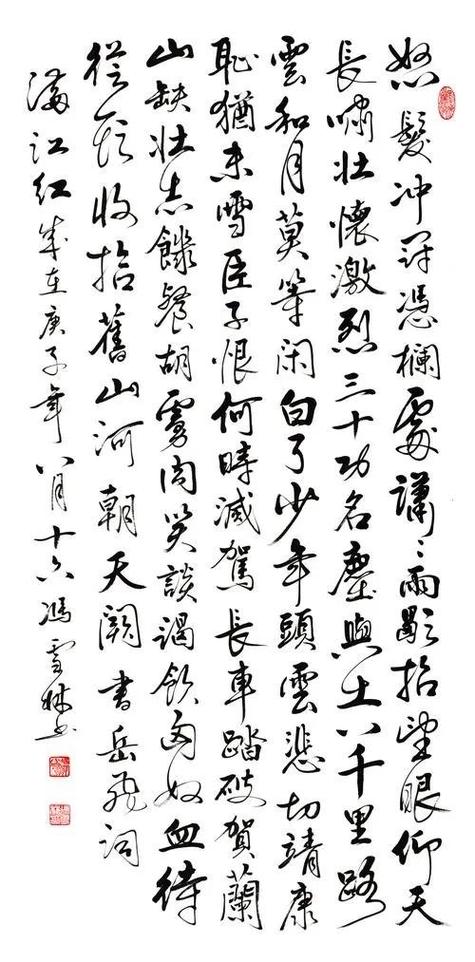 怒髮冲冠憑欄處瀟〻雨歇抬望眼仰天
長嘯壯懷激烈三十功名塵與土八千里路
雲和月莫等閑白了少年頭雲悲切靖康
恥猶未雪臣子恨何時滅駕長車踏破賀蘭
山缺壯志饑餐胡虜肉笑談渴飲匈奴血待
從頭收拾舊山河朝天闕書岳飛詞
滿江紅歲在庚子年八月十六馮雪林書